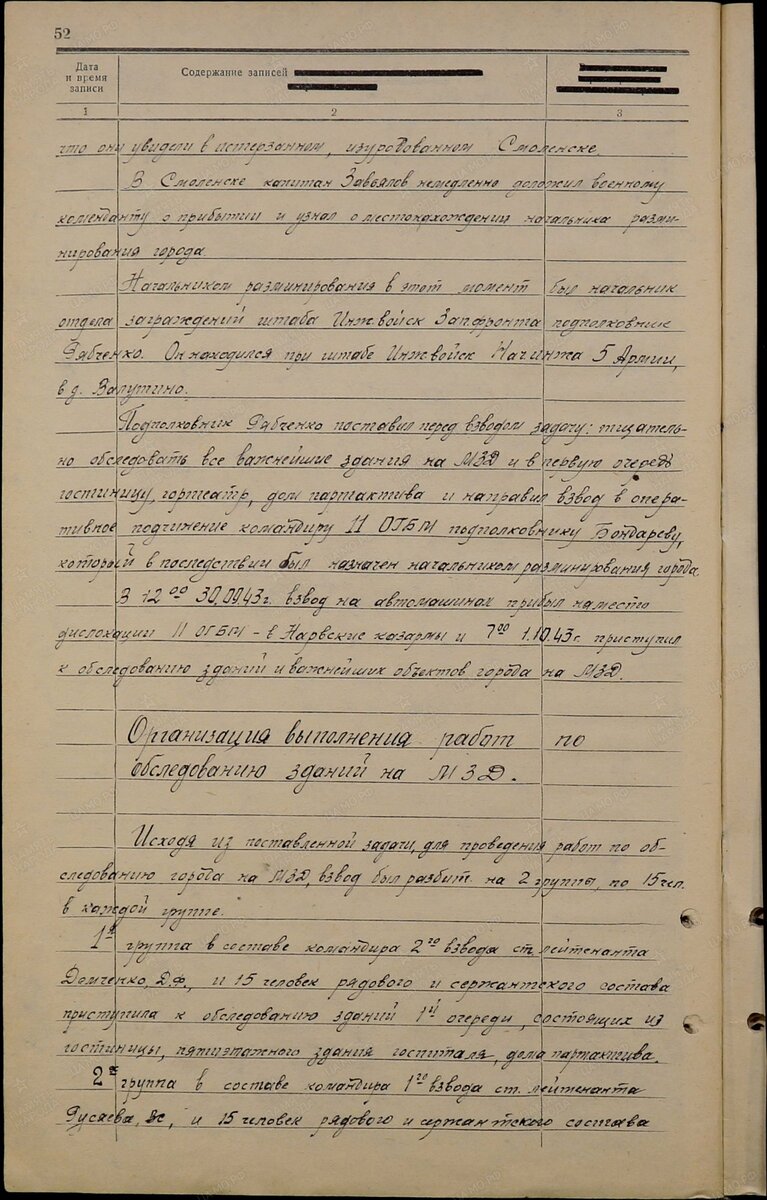 52
Дата
и время
записи
Содержание записей
1
2
3
что они увидели в истерзанном, изуродованном Смоленске.
В Смоленске капитан Завьялов немедленно доложил военному
коменданту о прибытии и узнал о местонахождении начальника разми-
нирования города.
Начальником разминирования в этот момент был начальник
отдела заграждений штаба Инж.войск Запфронта подполковник
Рябченко. Он находился при штабе Инж.войск Начинжа 5 Армии,
в д. Валутино.
Подполковник Рябченко поставил перед взводом задачу: тщатель-
но обследовать все важнейшие здания на МЗД и в первую очередь
гостиницу, гортеатр, дом партактива и направил взвод в опера-
тивное подчинение командиру 11 ОГБМ подполковнику Бондареву,
который в последствии был назначен начальником разминирования города.
В 12⁰⁰ 30.09.43г. взвод на автомашинах прибыл на место
дислокации 11 ОГБМ - в Нарвские казармы и 7⁰⁰ 1.10.43г. приступил
к обследованию зданий и важнейших объектов города на МЗД.
Организация выполнения работ по
обследованию зданий на МЗД.
Исходя из поставленной задачи, для проведения работ по об-
следованию города на МЗД, взвод был разбит на 2 группы, по 15 чел.
в каждой группе.
1я группа в составе командира 2го взвода ст. лейтенанта
Домченко, Д.Ф., и 15 человек рядового и сержантского состава
приступила к обследованию зданий 1й очереди, состоящих из
гостиницы, пятиэтажного здания госпиталя, дома партактива.
2я группа в составе командира 1го взвода ст. лейтенанта
Русяева, и 15 человек рядового и сержантского состава